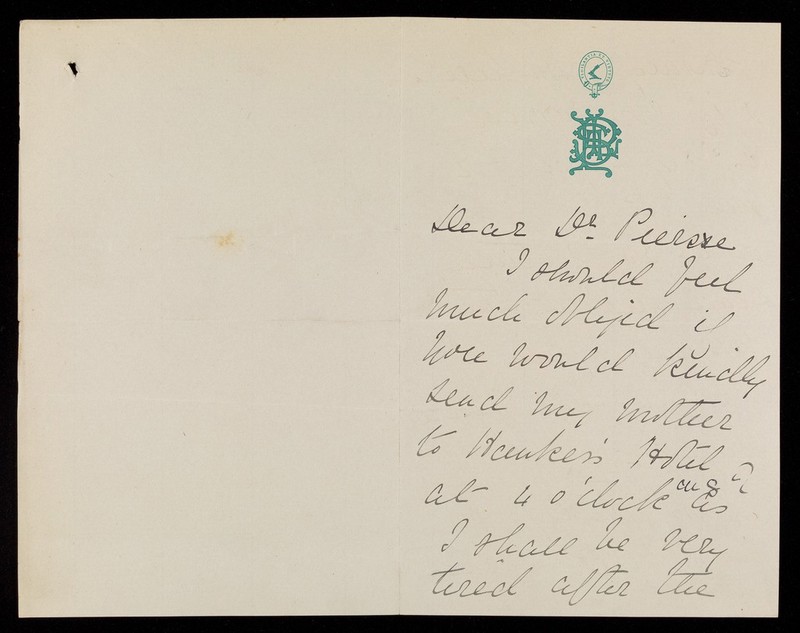 Dear Dr. Pierce
I should feel
much obliged if
you would kindly
send my mother
to Hawker's Hotel
at 4 o'clock as
I shall be very
tired after the